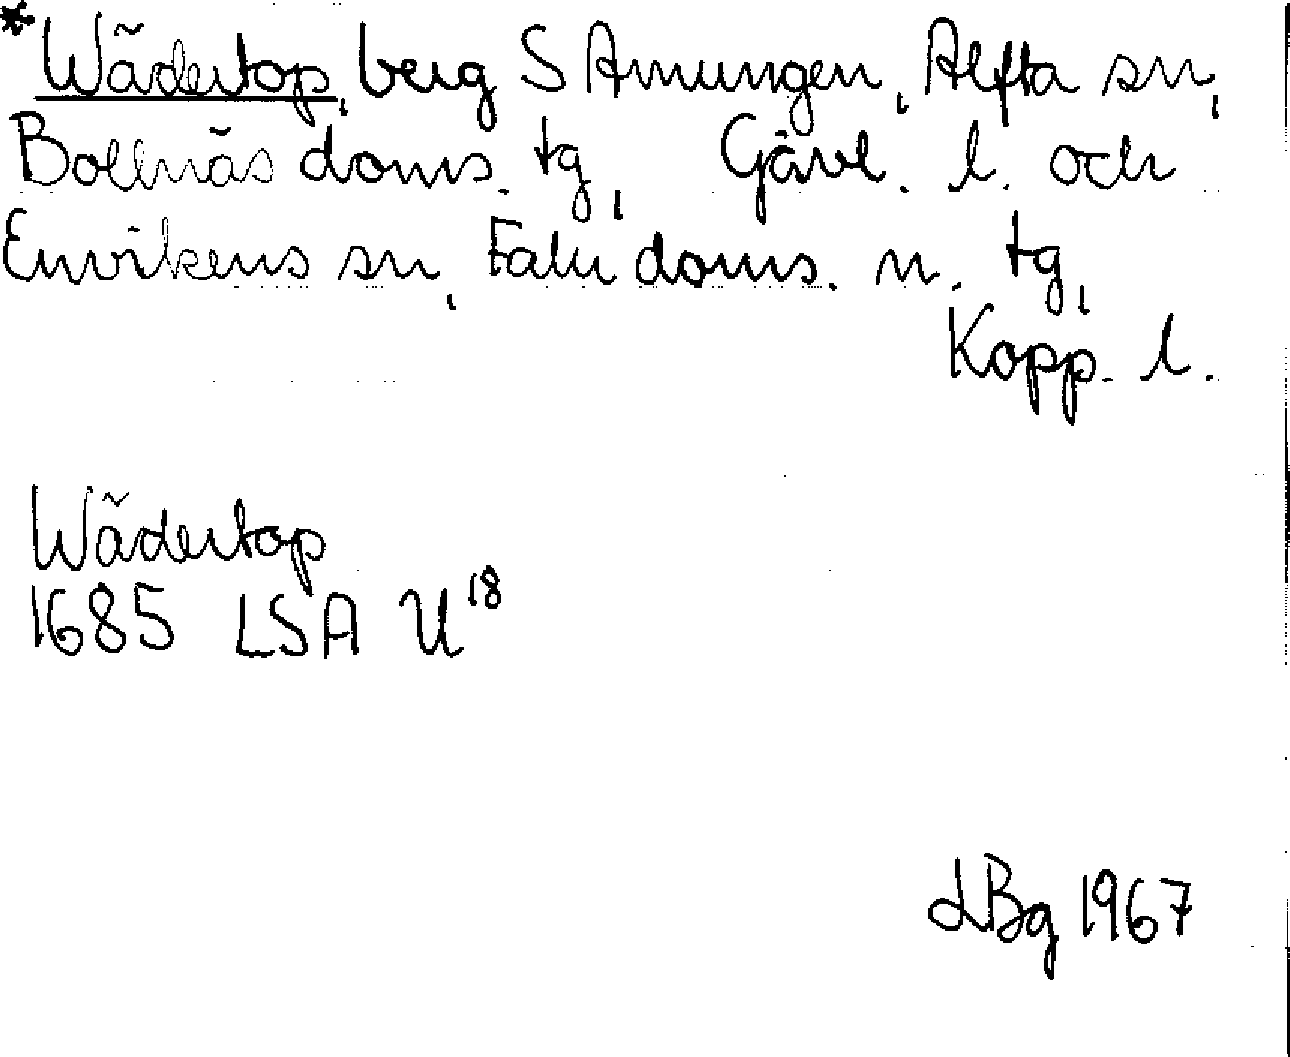 *Wädertop, berg S Amungen, Alfta sn,
Bollnäs doms. tg, Gävl. l. och
Envikens sn, Falu doms. n. tg,
Kopp. l.
Wädertop
1685 LSA U18
LBg 1967